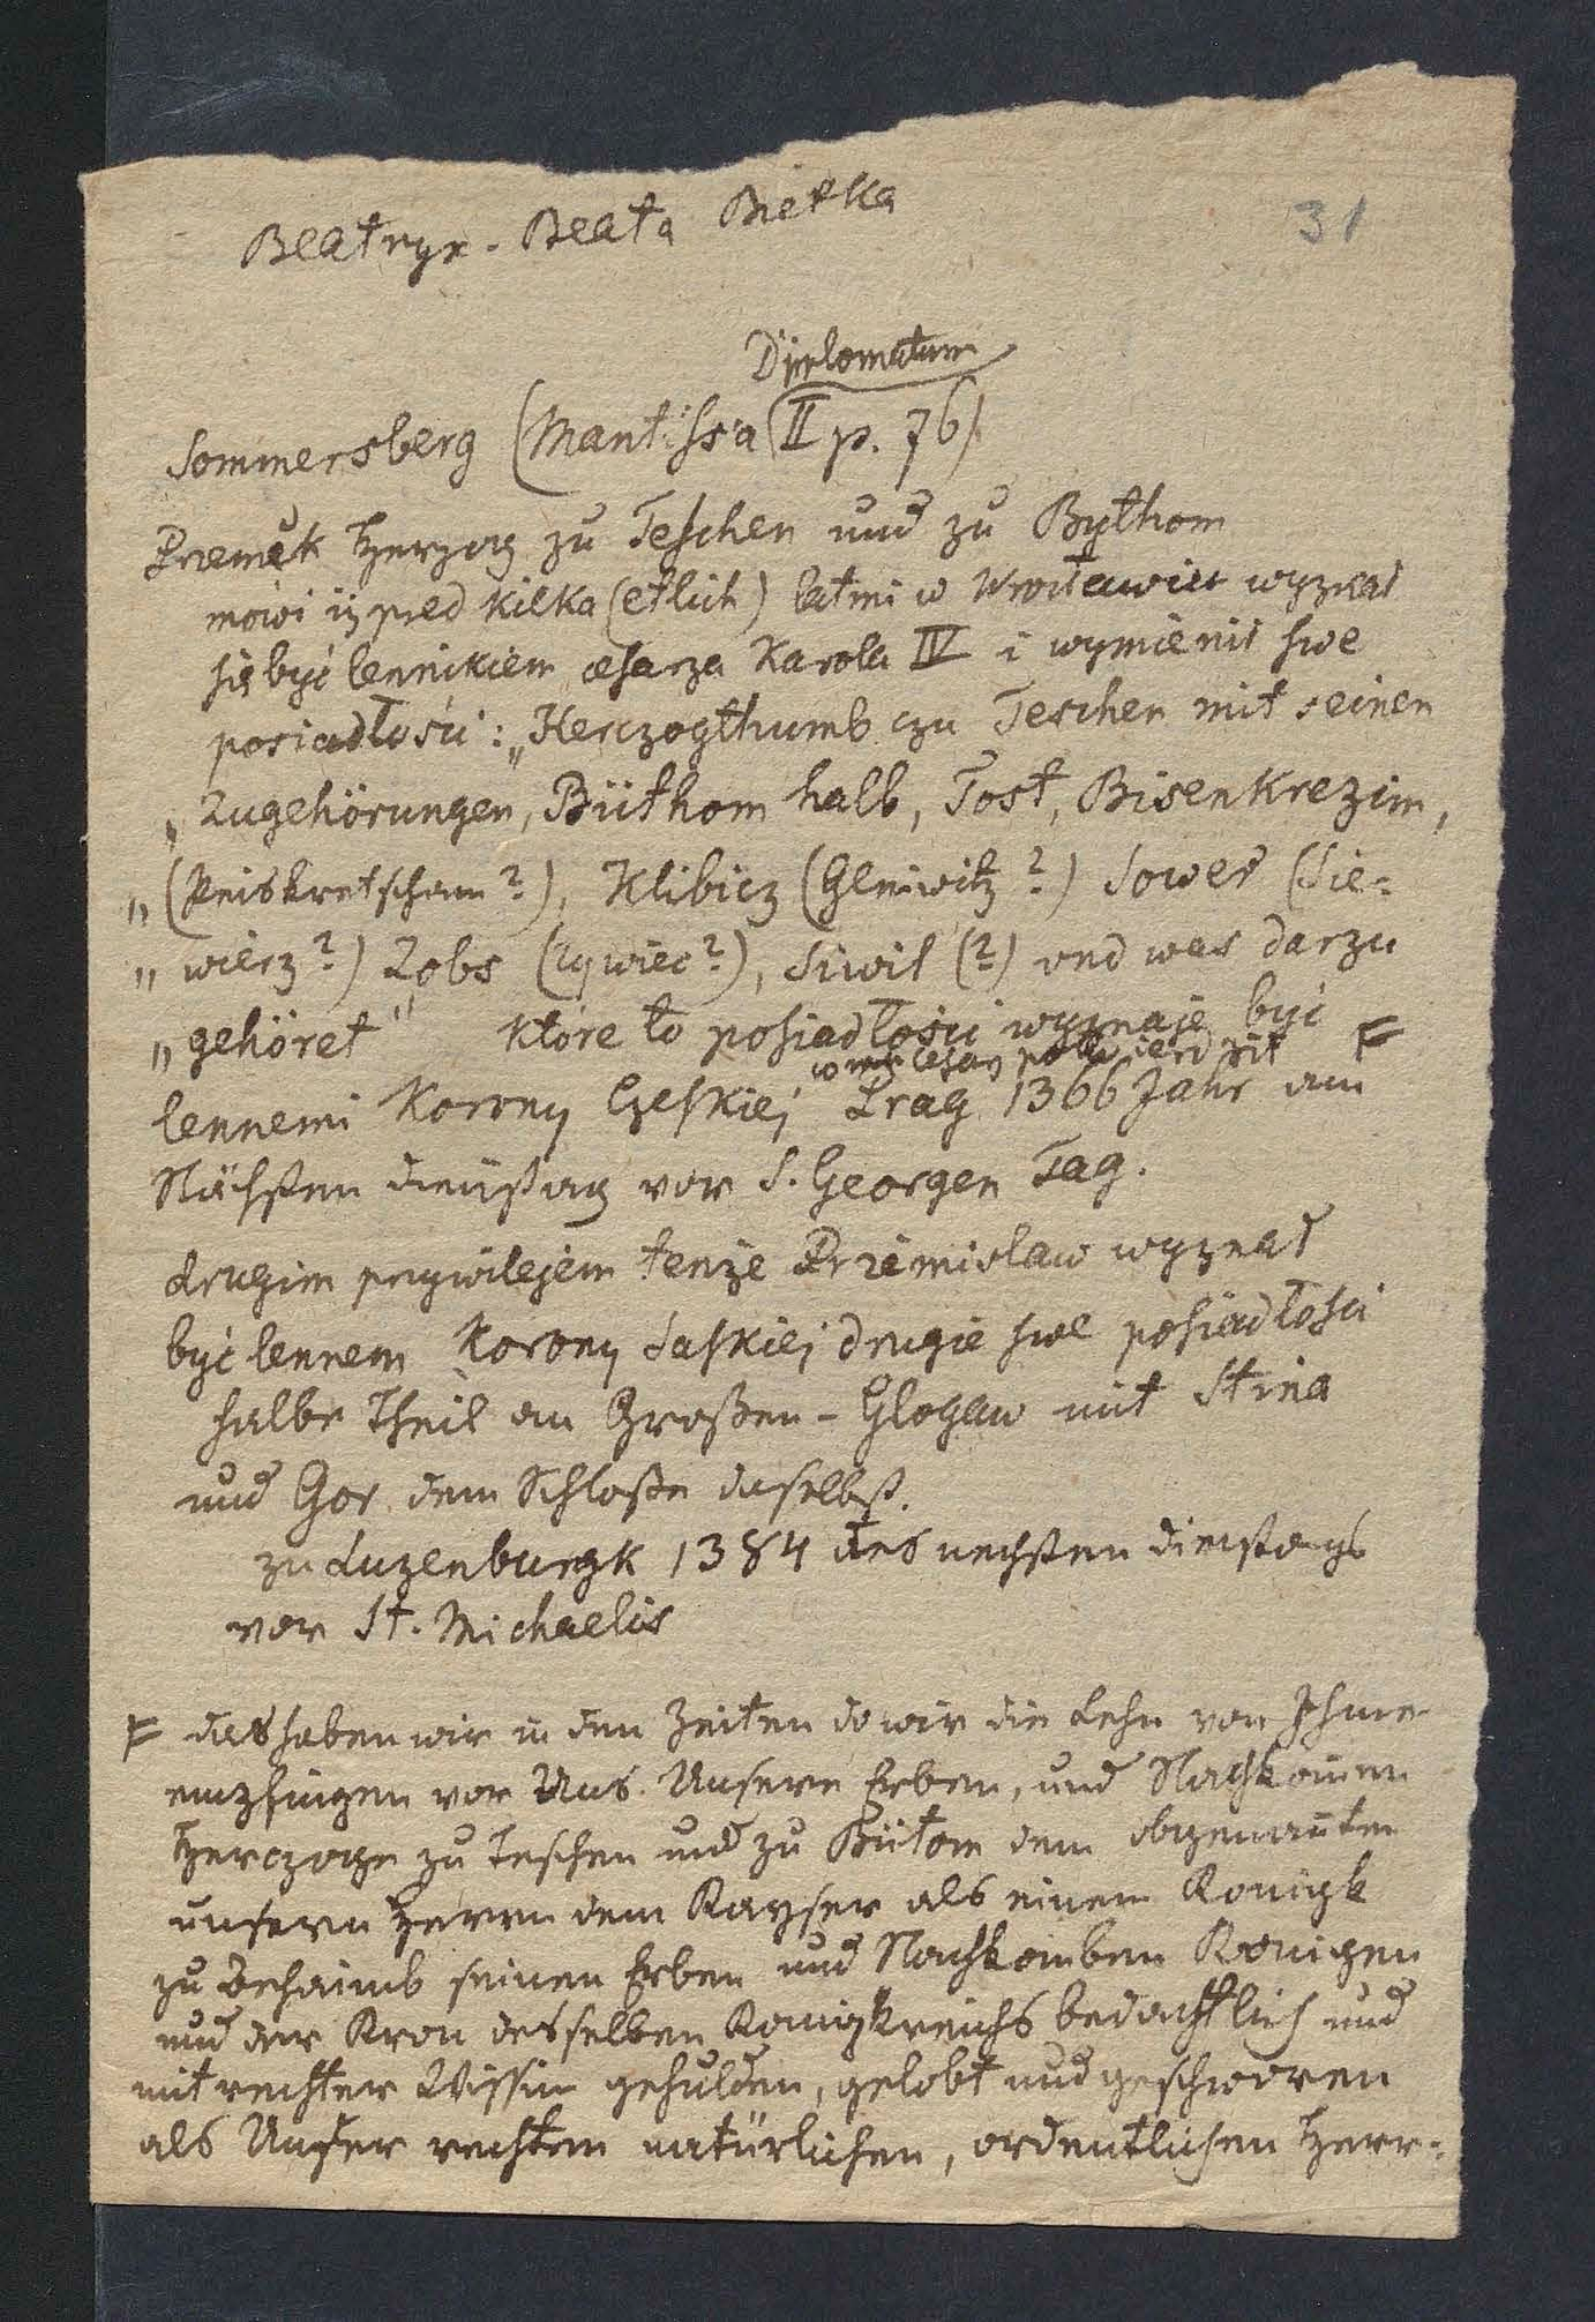 Beatryx - Beata Bietka
31
Diplomatum
Sommersberg (Mantissa II p. 76)
Przemek Herzog zu Teschen und zu Bythom
mówi iż pred kilka (etlich) latmi w Wrocławiu wyznał
się być lennikiem cesarza Karola IV i wymienił swe
posiadłości: „Herczogthumb czu Teschen mit seinen
„Zugehörungen, Büthom halb, Tost, Bisenkrezim,
„(Peiskretscham?), Klibicz (Gleiwitz?) Sower (Sie-
„wierz?) Zobs (Zywiec?), Siwil (?) und was darzu
„gehöret" które to posiadłości wyznaje być F
cesarz potwierdził
lennemi Korony Czeskiej Prag 1366 Jahr am
Nächsten dinstag vor S. Georgen Tag.
drugim prywilejem tenże Przemislaw wyznał
być lennem Korony Saskiej drugie swe posiadłości
halbe Theil an Großen-Glogaw mit Stina
und Gor dem Schloße daselbst.
zu Luzenburgk 1384 des nechsten dienstags
vor St. Michaelis
F das haben wir in den Zeiten do wir die Lehn von Ihme
empfingen vor Uns. Unsere Erben, und Nachkom̄en
Herczoge zu Teschen und zu Bütom dem obgenan̄ten
unsern Herrn dem Kayser als einem Konigk
zu Behaimb seinen Erben und Nachkomben Konigen
und der Kron desselben Konigkreichs bedachtlich und
mit rechter Wissin gehulden, gelobt und geschworen
als Unser rechtem natürlichen, ordentlichen Herr-